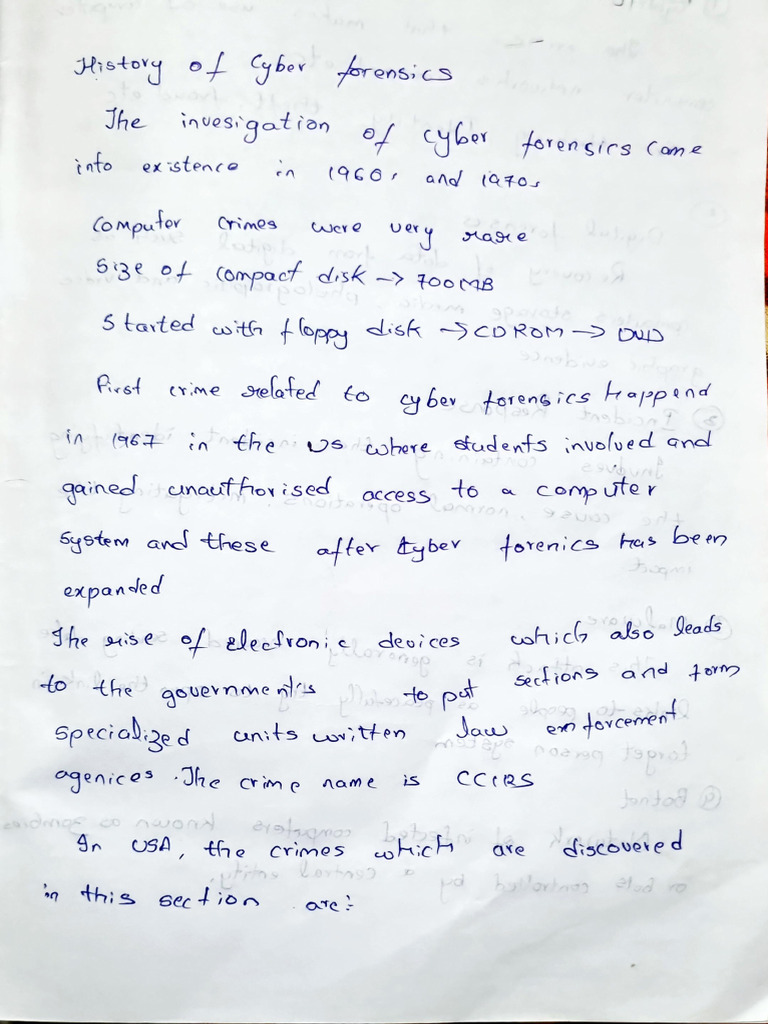 History of Cyber forensics
The invesigation of cyber forensics came
into existence in 1960s and 1970s
Computer crimes were very rare
Size of compact disk -> 700MB
Started with floppy disk -> CD ROM -> DVD
First crime related to cyber forensics happend
in 1967 in the US where students involved and
gained unauthorised access to a computer
system and these after cyber forenics has been
expanded
The rise of electronic devices which also leads
to the government's to put sections and form
specialized units written law enforcement
agenices. The crime name is CCIRS
In USA, the crimes which are discovered
in this section are:-